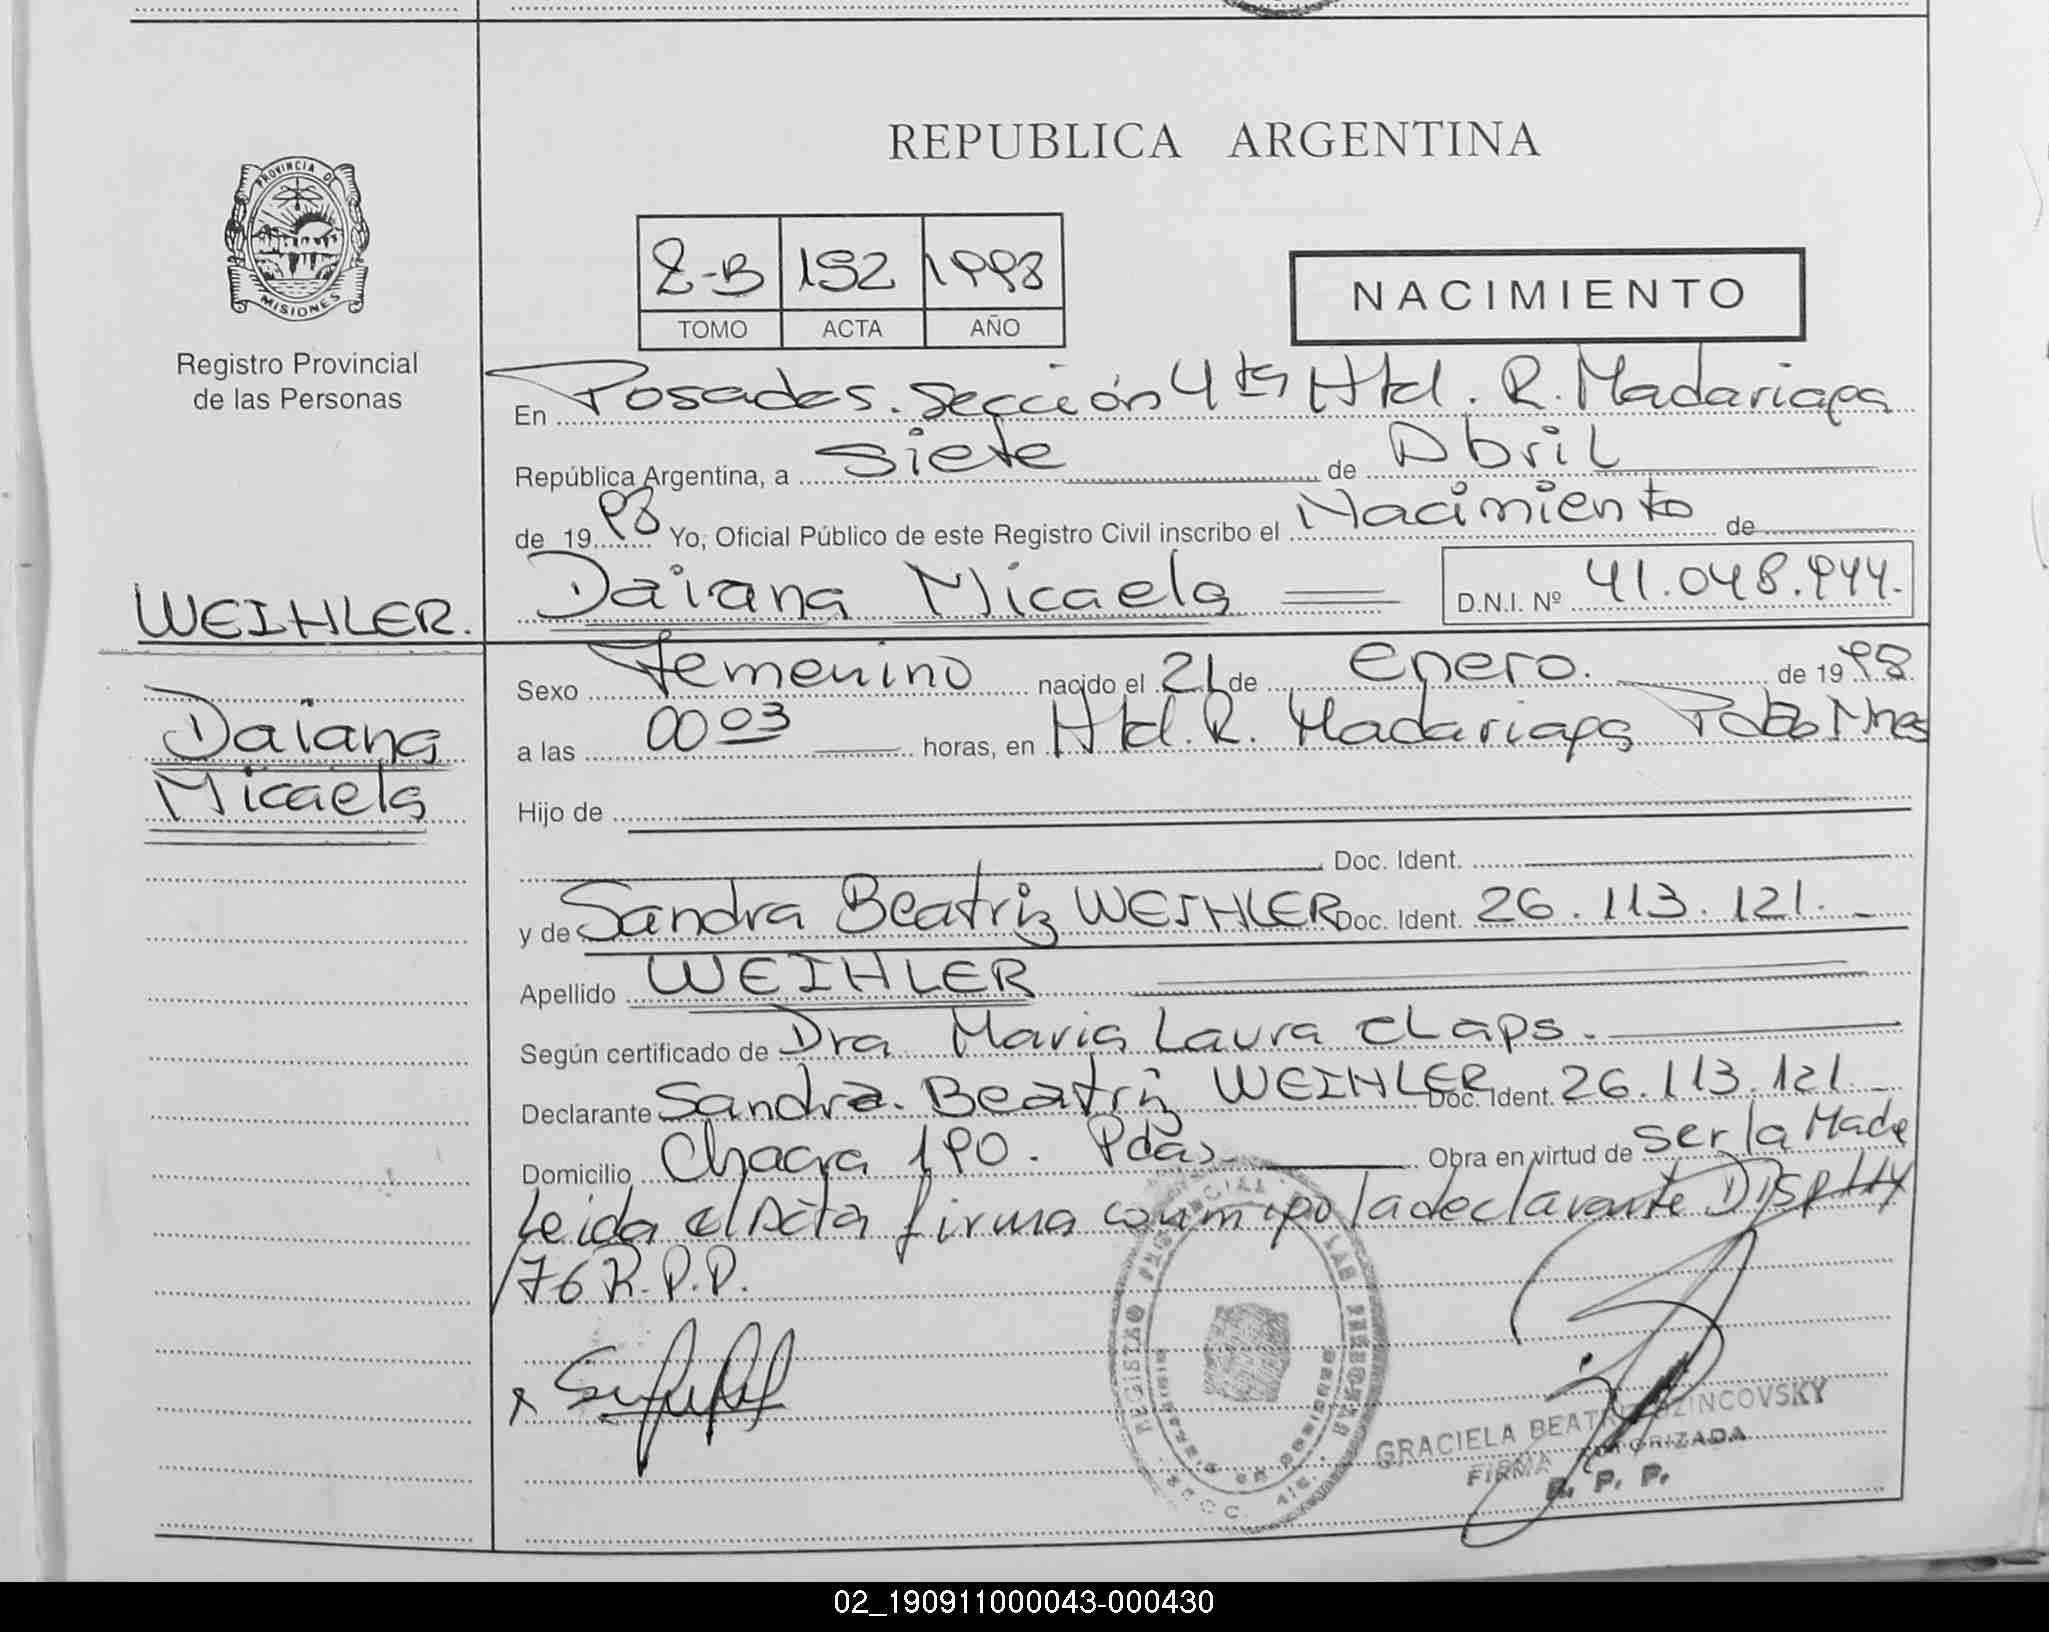 REPUBLICA ARGENTINA
PROVINCIA DE
MISIONES
Registro Provincial
de las Personas
2-B 152 1998
TOMO ACTA AÑO
NACIMIENTO
En Posadas. Sección 4ta Htal. R. Madariaga
República Argentina, a siete de Abril
de 1998 Yo, Oficial Público de este Registro Civil inscribo el Nacimiento de
Daiana Micaela D.N.I. Nº 41.048.944.
WEIHLER.
Daiana
Micaela
Sexo Femenino nacido el 21 de Enero. de 1998
a las 00 03 horas, en Htal. R. Madariaga Pdas Mnes
Hijo de
Doc. Ident.
y de Sandra Beatriz WEIHLER Doc. Ident. 26.113.121.
Apellido WEIHLER
Según certificado de Dra Maria Laura
Declarante Sandra. Beatriz WEIHLER Doc. Ident. 26.113.121.
Domicilio Chacra 190. Pdas Obra en virtud de ser la Madre
Leida el Acta firma conmigo la declarante DISP
76 R.P.P.
x
GRACIELA BEATRIZ
FIRMA AUTORIZADA
R. P. P.
02_190911000043-000430